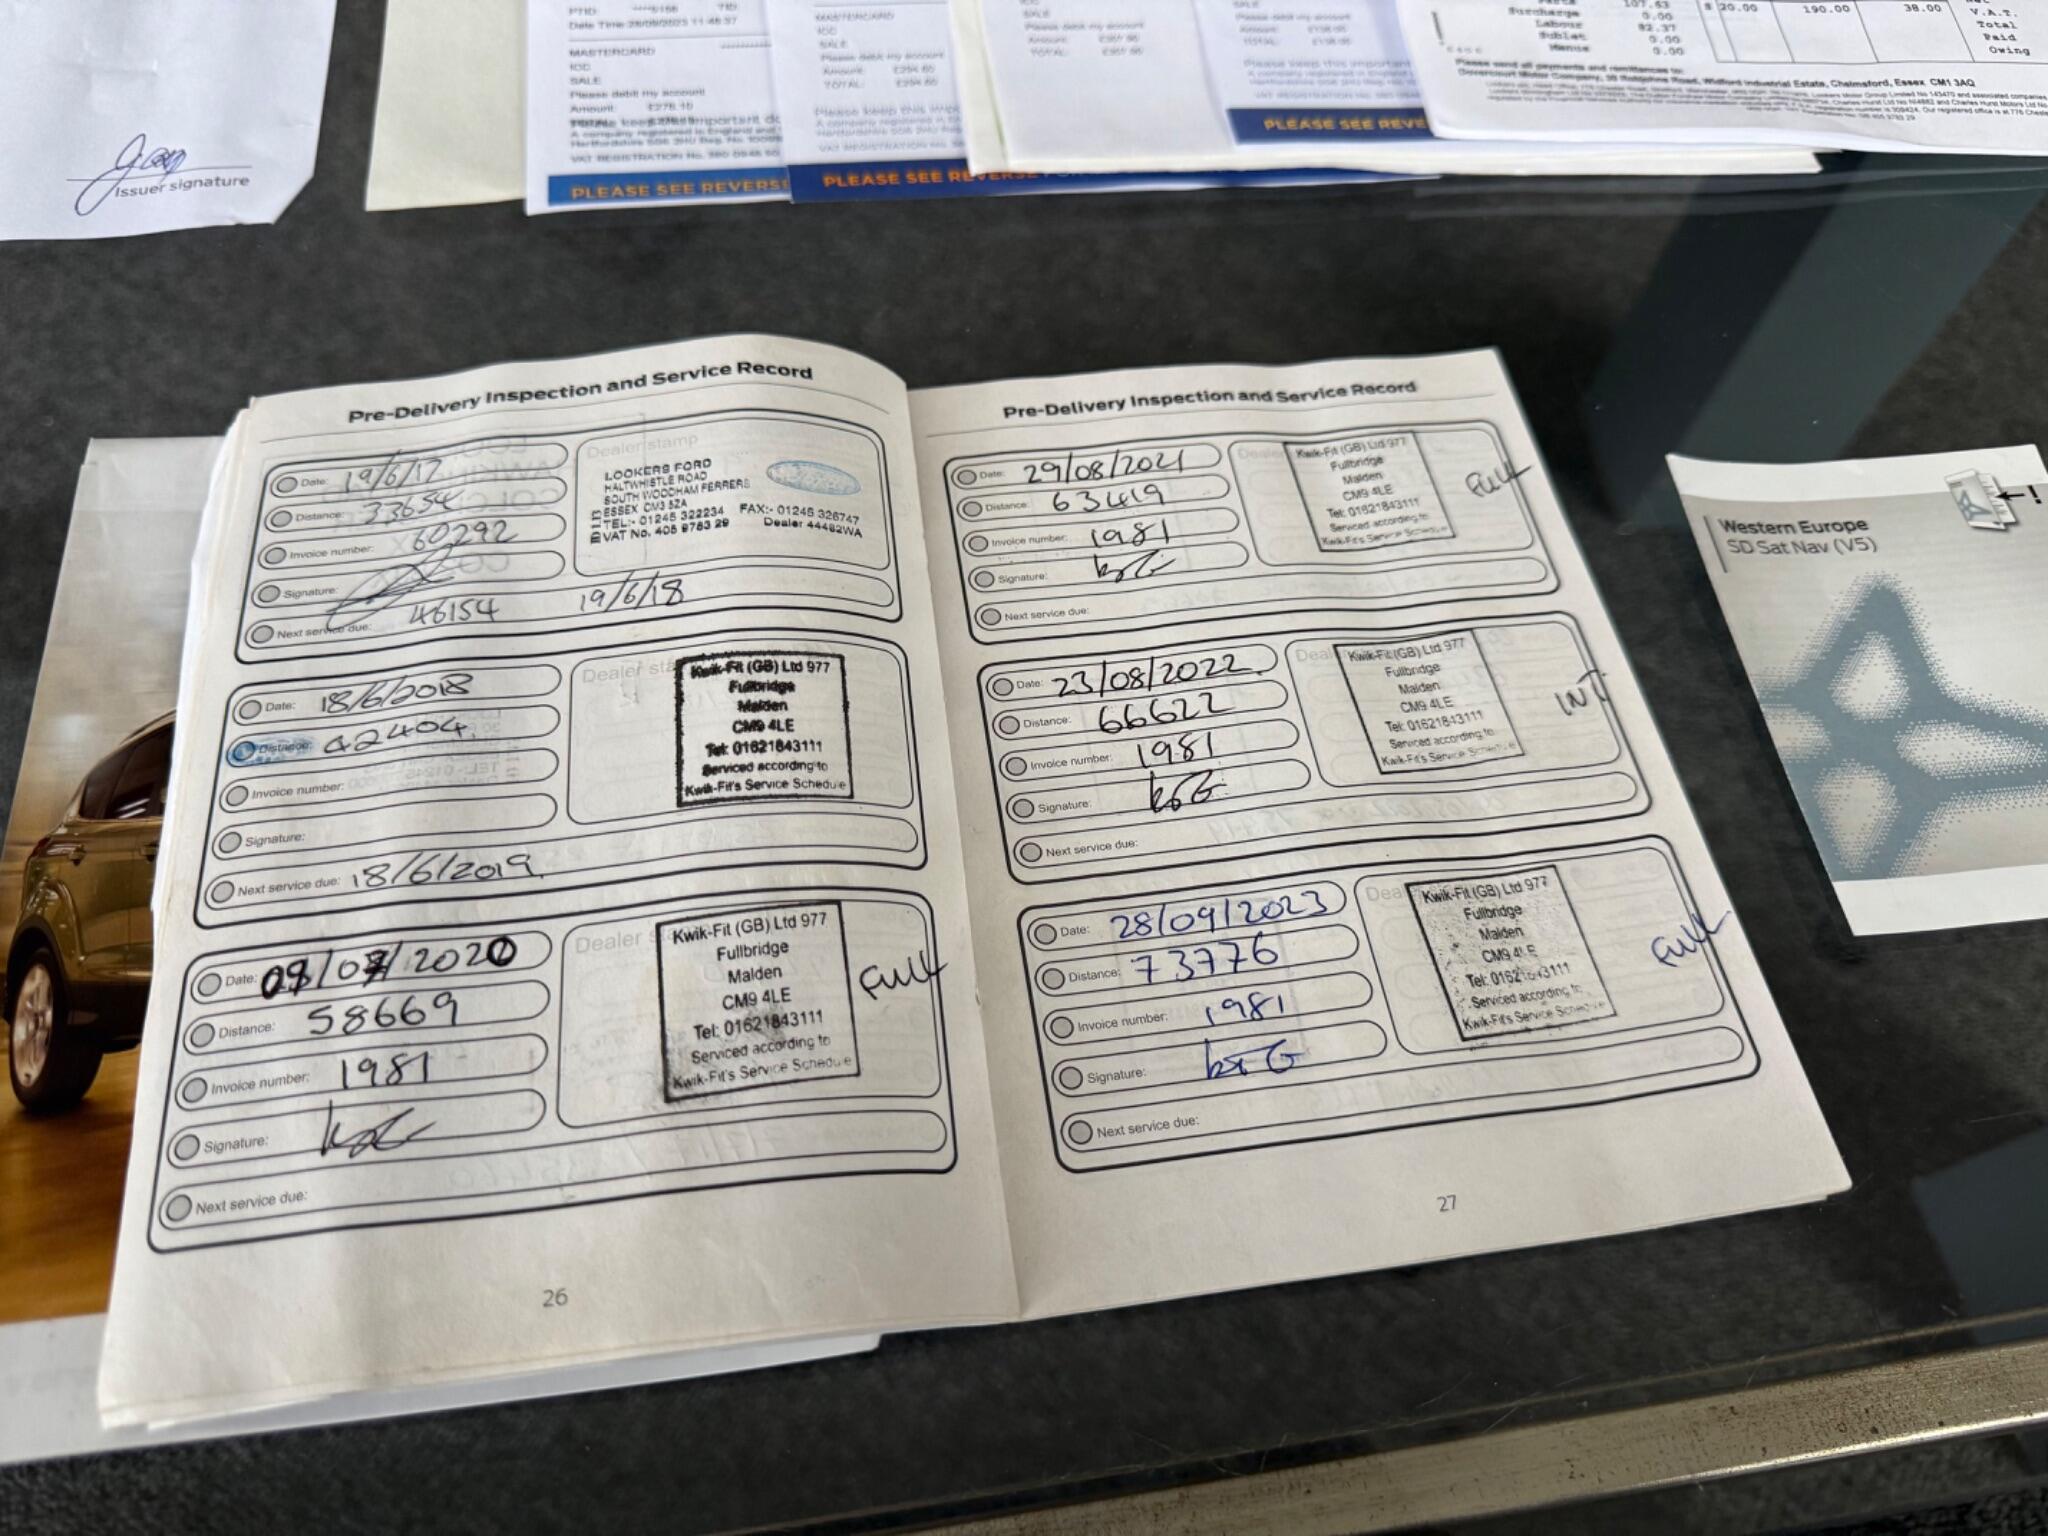 Issuer signature
Date Time: 28/09/2023 11:48:37
MASTERCARD
ICC
SALE
Please debit my account
Amount: £276.10
A company registered in England and
PLEASE SEE REVERSE
MASTERCARD
ICC
SALE
Please debit my account
Amount: £294.60
TOTAL: £294.60
Please keep this
PLEASE SEE REVERSE
SALE
Please debit my account
TOTAL:
Please debit my account
Please keep this important
PLEASE SEE REVE
Parts 107.63
Surcharge 0.00
Labour 82.37
Sublet 0.00
Menus 0.00
S 20.00 190.00 38.00
V.A.T.
Total
Paid
Owing
Please send all payments and remittances to:
Dovercourt Motor Company, 38 Robjohns Road, Widford Industrial Estate, Chelmsford, Essex CM1 3AQ
Pre-Delivery Inspection and Service Record
Date: 19/6/17
Distance: 33654
Invoice number: 60292
Signature:
Next service due: 46154 19/6/18
Dealer stamp
LOOKERS FORD
HALTWHISTLE ROAD
SOUTH WOODHAM FERRERS
ESSEX CM3 5ZA
TEL:- 01245 322234 FAX:- 01245 326747
VAT No. 405 9763 29 Dealer 44482WA
Date: 18/6/2018
Distance: 42404
Invoice number:
Signature:
Next service due: 18/6/2019.
Kwik-Fit (GB) Ltd 977
Fullbridge
Malden
CM9 4LE
Tel: 01621843111
Serviced according to
Kwik-Fit's Service Schedule
Date: 09/07/2020
Distance: 58669
Invoice number: 1981
Signature:
Next service due:
Dealer
Kwik-Fit (GB) Ltd 977
Fullbridge
Malden
CM9 4LE
Tel: 01621843111
Serviced according to
Kwik-Fit's Service Schedule
FULL
26
Pre-Delivery Inspection and Service Record
Date: 29/08/2021
Distance: 63419
Invoice number: 1981
Signature:
Next service due:
Kwik-Fit (GB) Ltd 977
Fullbridge
Malden
CM9 4LE
Tel: 01621843111
Serviced according to
Kwik-Fit's Service Schedule
FULL
Date: 23/08/2022.
Distance: 66622
Invoice number: 1981
Signature:
Next service due:
Kwik-Fit (GB) Ltd 977
Fullbridge
Malden
CM9 4LE
Tel: 01621843111
Serviced according to
Kwik-Fit's Service Schedule
INT
Date: 28/09/2023
Distance: 73776
Invoice number: 1981
Signature:
Next service due:
Kwik-Fit (GB) Ltd 977
Fullbridge
Malden
CM9 4LE
Tel: 01621843111
Serviced according to
Kwik-Fit's Service Schedule
FULL
27
Western Europe
SD Sat Nav (V5)